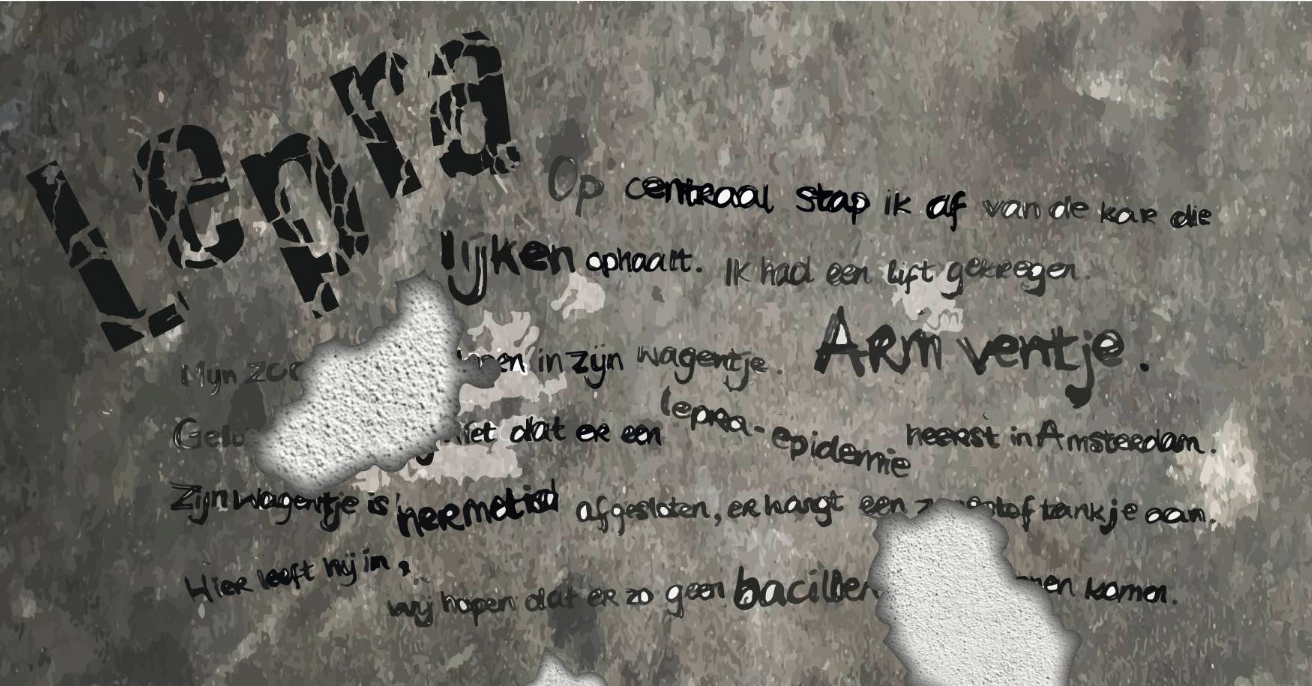 Lepra
Op centraal stap ik af van de kar die
lijken ophaalt. Ik had een lift gekregen.
Mijn in zijn wagentje. Arm ventje.
dat er een lepra-epidemie heerst in Amsterdam.
Zijn wagentje is hermetisch afgesloten, er hangt een tankje aan.
Hier leeft hij in,
wij hopen dat er zo geen bacillen komen.